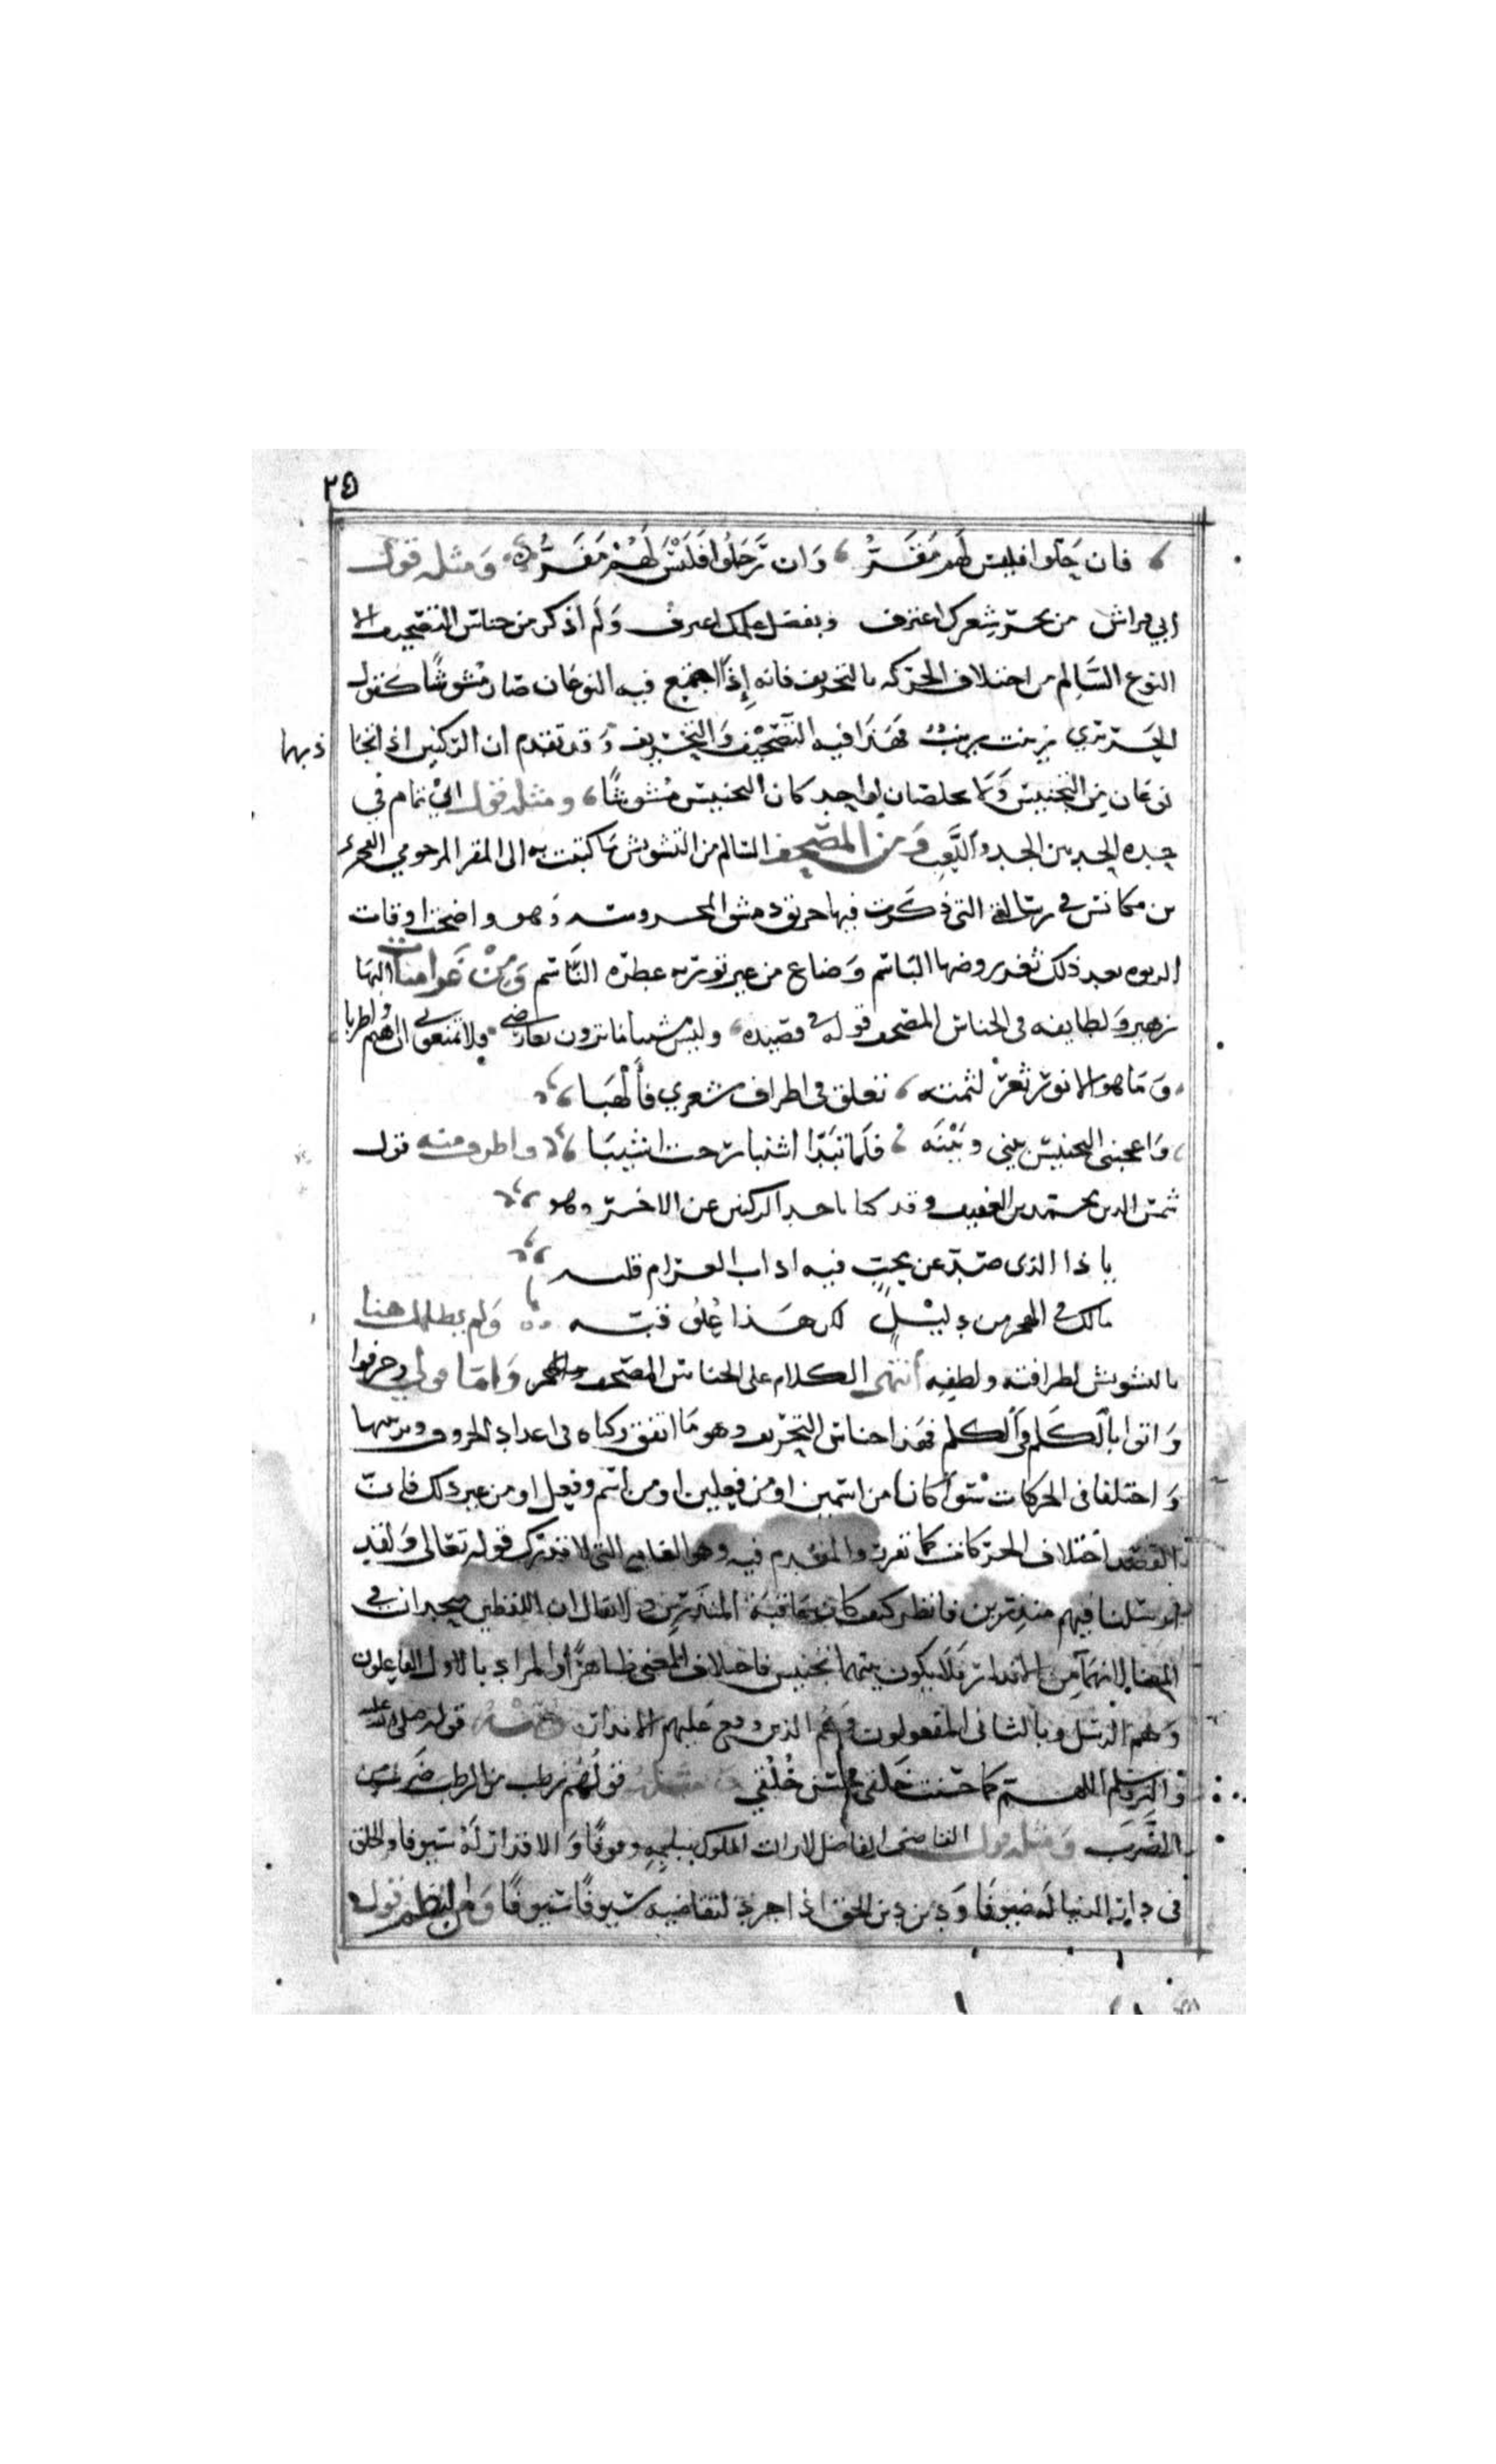 ٢٥
فان حلوا فليس لهم مقر ، وان رحلوا فليس لهم مفر ومثله قول
ابي فراس من بحر شعرك اغترف وبفضل علمك اعترف ولم اذكر من جناس التصحيف الا
النوع السالم من اختلاف الحركه بالتحريف فانه إذا اجتمع فيه النوعان صار مشوشا كقول
الحريري زينت زينب فهذا فيه التصحيف والتحريف وقد تقدم ان الركنين اذا تجا
ذبهما
نوعان من التجنيس ولا يخلصان لواحد كان التجنيس مشوشا ، ومثله قول ابي تمام في
حده الحد بين الجد واللعب ومن المصحف السالم من التشويش ما كتبت به الى المقر المرحومي الفخري
بن مكانس في رسالة التي ذكرت فيها حريق دمشق المحروسه وهو واضحت اوقات
الربوه بعد ذلك ثغر روضها الباسم وضاع من غير تورية عطره الناسم ومن غراميات البها
زهير ولطايفه في الجناس المصحف قوله في قصيده ، وليس مشيبا ما ترون بعارضي فلا تمنعوني ان اهيم واطربا
وما هو الا نور ثغر لثمته ، تعلق في اطراف شعري فألهبا
واعجبني التجنيس بيني وبينه ، فلما تبدا اشنبا رحت اشيبا واظرف منه قول
شمس الدين محمد بن العفيف وقد كنا باحد الركنين عن الاخر وهو
يا ذا الذى صد عن محب فيه اذاب الغرام قلبه
مالك في الهجر من دليل لكن هذا علوق قبه ولم يطلك هنا
بالتشويش لظرافته ولطفه أنتهى الكلام على الجناس المصحف واما قولي وحرفوا
واتوا بالكلم في الكلم فهذا جناس التحريف وهو ما اتفق ركناه في اعداد الحروف وترتيبها
واختلفا في الحركات سوآ كانا من اسمين او من فعلين او من أسم وفعل او من غير ذلك فان
القصد اختلاف الحركات كما تقرر والمقدم فيه وهو الغايه التي لا تدرك قوله تعالى ولقد
ارسلنا فيهم منذرين فانظر كيف كان عاقبة المنذرين ولا يقال ان اللفظين متحدان في
المعنا لانهما من الانذار فلا يكون بينهما تجنيس فاختلاف المعنى ظاهر اذ المراد بالاول الفاعلون
وهم الرسل وبالثاني المفعولون وهم الذين وقع عليهم الانذار ومثله قوله صلى الله عليه
واله وسلم اللهم كما حسنت خلقي فحسن خلقي ومثله قولهم رطب من الرطب ضرب من
الضرب ومثله قول القاضي الفاضل لا زالت الملوك ببابه وقوفا والاقدار له سيوفا والخلق
في دار الدنيا له ضيوفا ودين دين الحق اذا جرد لتقاضيه سيوفا سيوفا ومن النظم قول